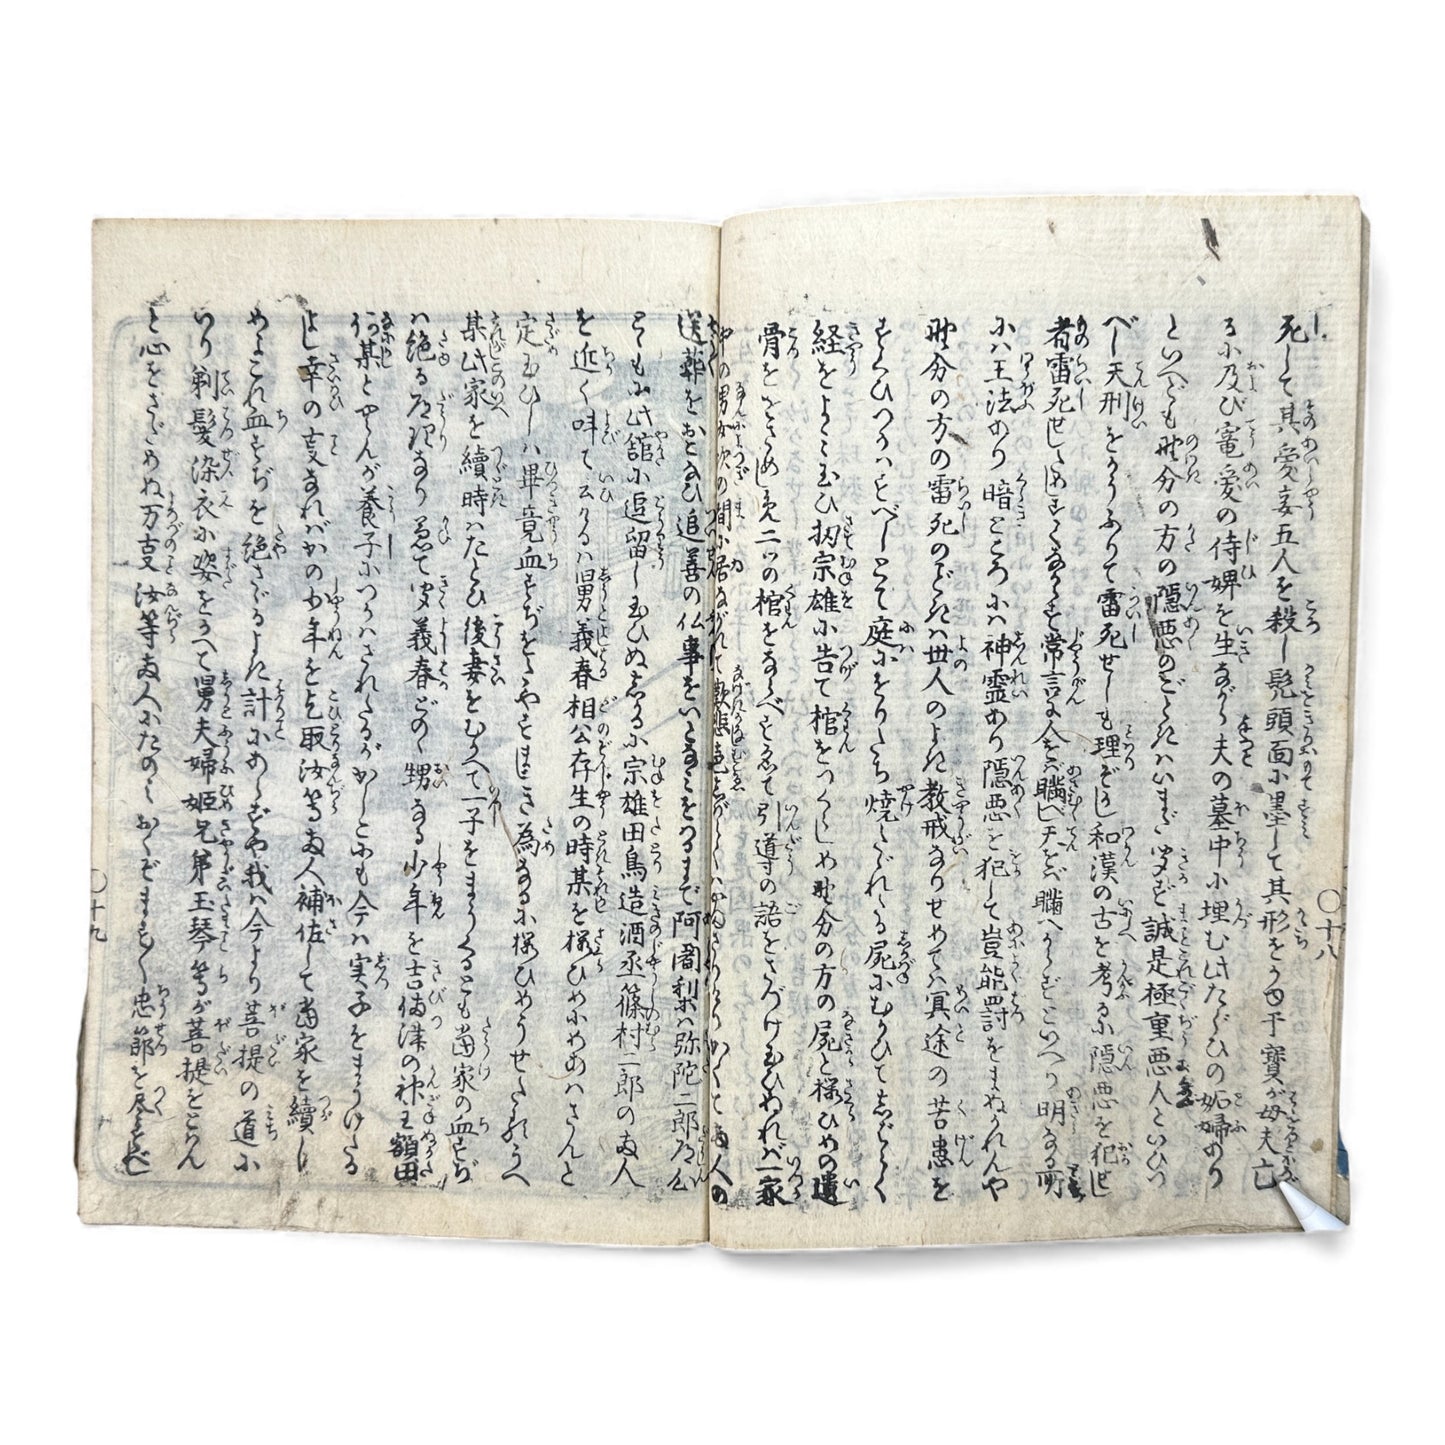 死して其愛妾五人を殺し髡頭面に墨して其形を
るに及び寵愛の侍婢を生ながら夫の墓中に埋む此たぐひの妬婦あり
といへども野分の方の隠悪のごときはいまだ聞ず誠是極重悪人といひつ
べし天刑をかうふりて雷死せしも理ぞかし和漢の古を考るに隠悪を犯せし
者雷死せしためしすくなからず常言に人をば瞞べし天をば瞞べからずといへり明なる所
には王法あり暗ところには神霊あり隠悪を犯して豈能罰をまぬかれんや
野分の方の雷死のごときは世人のよき教戒なりせめては冥途の苦患を
すくひつかはすべしとて庭にをりたち焼たゞれたる屍にむかひてしばらく
経をよみ玉ひ扨宗雄に告て棺をつくらしめ野分の方の屍と桜ひめの遺
骨ををさめしめ二つの棺をならべすゑて引導の語をさづけ玉ひぬれば一家
中の男女次の間に居ながれて歎悲
送葬をおこなひ追善の仏事をいとなみをはるまで阿闍梨は弥陀二郎
ともに此館に追留し玉ひぬしかるに宗雄田鳥造酒丞篠村二郎の両人
を近く呼て云けるは舅義春相公存生の時某を桜ひめにめあはさんと
定玉ひしは畢竟血すぢをたやすまじき為なるに桜ひめうせたるうへ
某此家を續時はたとひ後妻をむかへて一子をまうくるとも當家の血すぢ
は絶る道理なり兼て聞義春どのゝ甥なる少年を吉備津の神主額田
何某とやらんが養子につかはされたるがかしこにも今は実子をまうけたる
よし幸の事なればかの少年をこひ取汝等両人補佐して當家を續し
めよこれ血すぢを絶さゞるよき計にあらずや我は今より菩提の道に
いり剃髪染衣に姿をかへて舅夫婦姫兄弟玉琴等が菩提をとはん
と心をさだめぬ万事汝等両人にたのみおくぞますます忠節を尽すべし
〇十八
〇十九